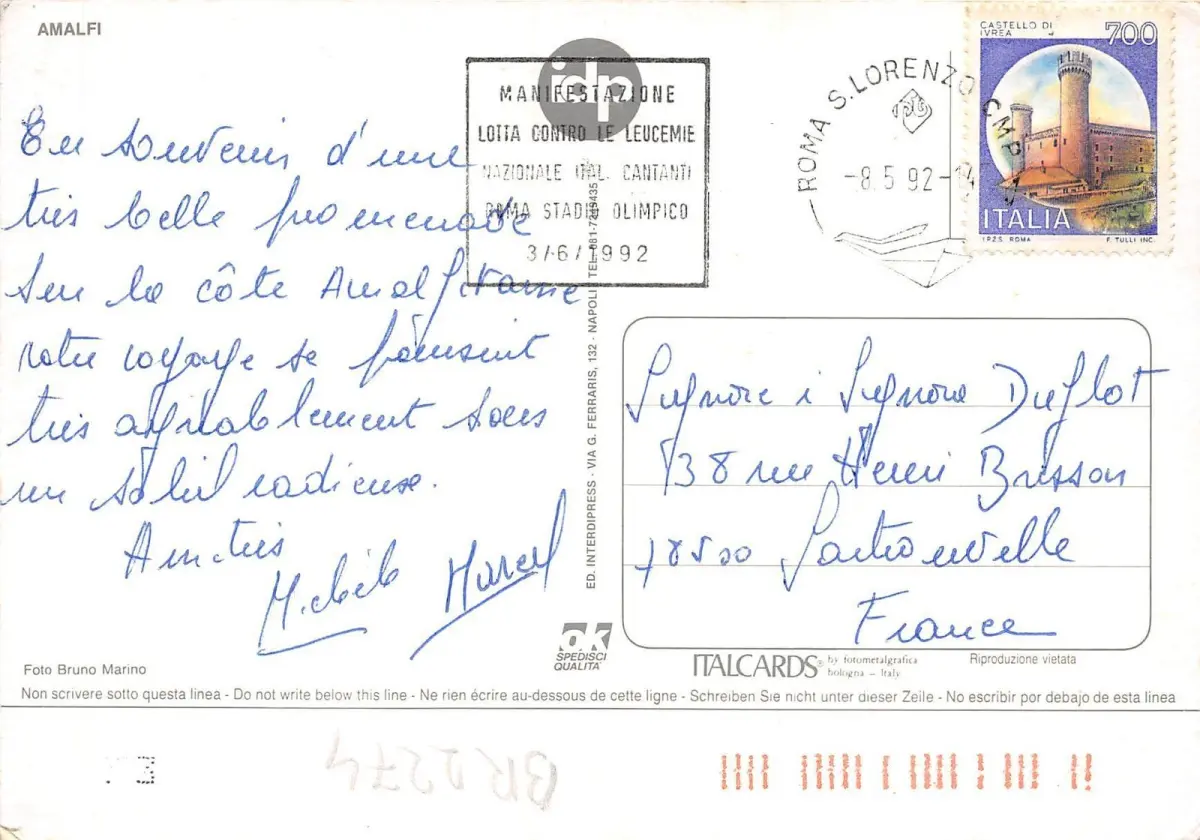 AMALFI
idp
MANIFESTAZIONE
LOTTA CONTRO LE LEUCEMIE
NAZIONALE ITAL. CANTANTI
ROMA STADIO OLIMPICO
3/6/1992
ROMA S.LORENZO CMP
-8.5 92-14
CASTELLO DI
IVREA
700
ITALIA
I.P.Z.S. ROMA
F. TULLI INC.
En souvenir d'une
très belle promenade
sur la côte Amalfitaine
notre voyage se poursuit
très agréablement sous
un soleil radieuse.
Amitiés
Michèle Marcel
ED. INTERDIPRESS - VIA G. FERRARIS, 132 - NAPOLI - TEL. 081-
Signore i Signora Duflot
138 rue Henri Brisson
78500 Sartrouville
France
Foto Bruno Marino
ok
SPEDISCI
QUALITA'
ITALCARDS® by fotometalgrafica
bologna – Italy
Riproduzione vietata
Non scrivere sotto questa linea - Do not write below this line - Ne rien écrire au-dessous de cette ligne - Schreiben Sie nicht unter dieser Zeile - No escribir por debajo de esta linea
BR2274